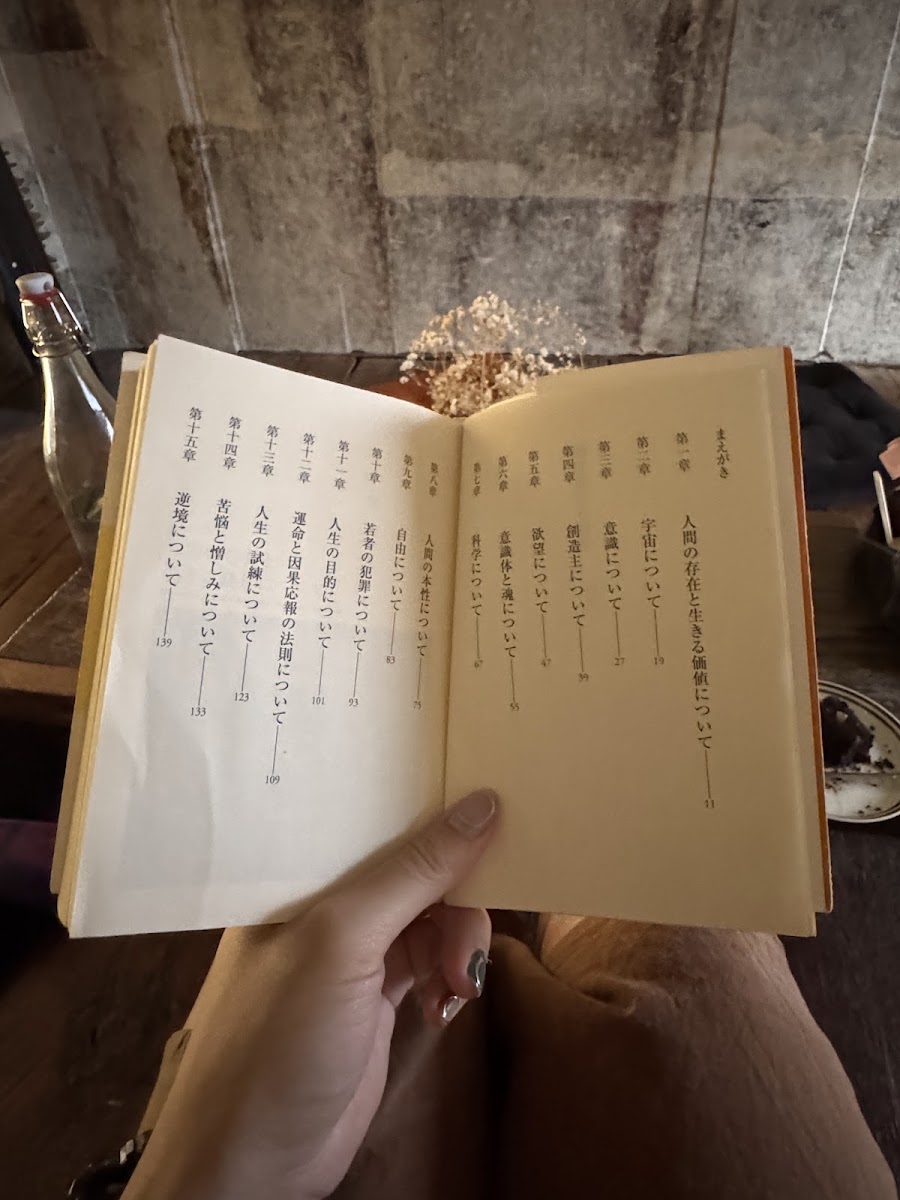 まえがき
第一章 人間の存在と生きる価値について 11
第二章 宇宙について 19
第三章 意識について 27
第四章 創造主について 39
第五章 欲望について 47
第六章 意識体と魂について 55
第七章 科学について 67
第八章 人間の本性について 75
第九章 自由について 83
第十章 若者の犯罪について 93
第十一章 人生の目的について 101
第十二章 運命と因果応報の法則について 109
第十三章 人生の試練について 123
第十四章 苦悩と憎しみについて 133
第十五章 逆境について 139